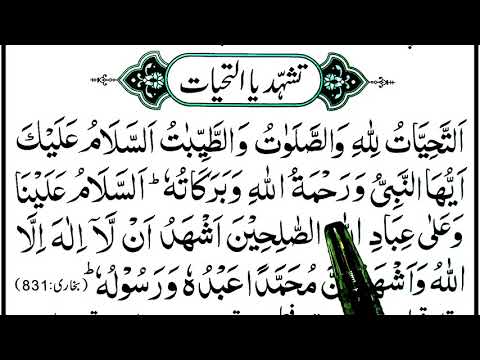 تشہد یا التحیات
اَلتَّحِيَّاتُ لِلّٰهِ وَالصَّلَوٰتُ وَالطَّيِّبٰتُ اَلسَّلَامُ عَلَيْكَ
اَيُّهَا النَّبِيُّ وَرَحْمَةُ اللّٰهِ وَبَرَكَاتُهٗ ؕ اَلسَّلَامُ عَلَيْنَا
وَعَلٰى عِبَادِ الصّٰلِحِيْنَ اَشْهَدُ اَنْ لَّآ اِلٰهَ اِلَّا
اللّٰهُ وَاَشْهَدُ مُحَمَّدًا عَبْدُهٗ وَرَسُوْلُهٗ ؕ (بخاری:831)